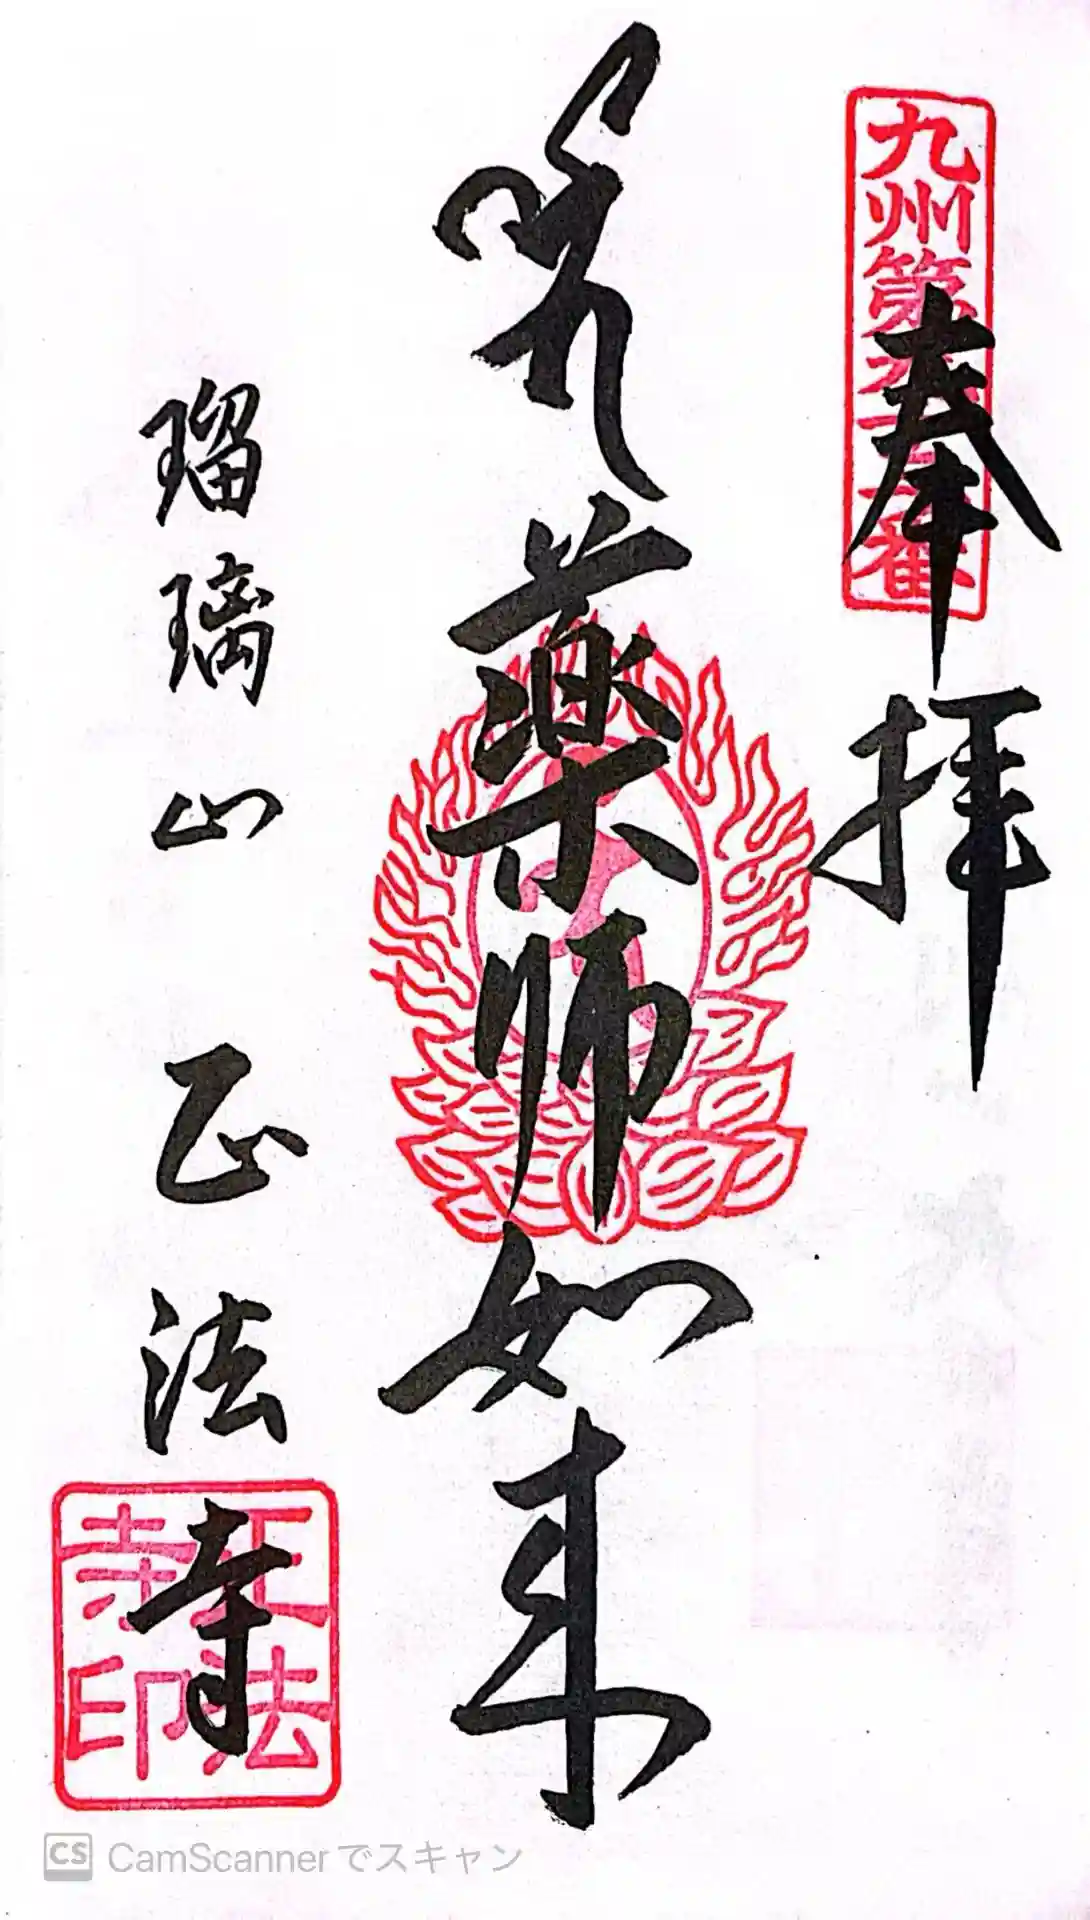 九州第六十二番
奉拝
薬師如来
瑠璃山 正法寺
正法
寺印
CS CamScannerでスキャン